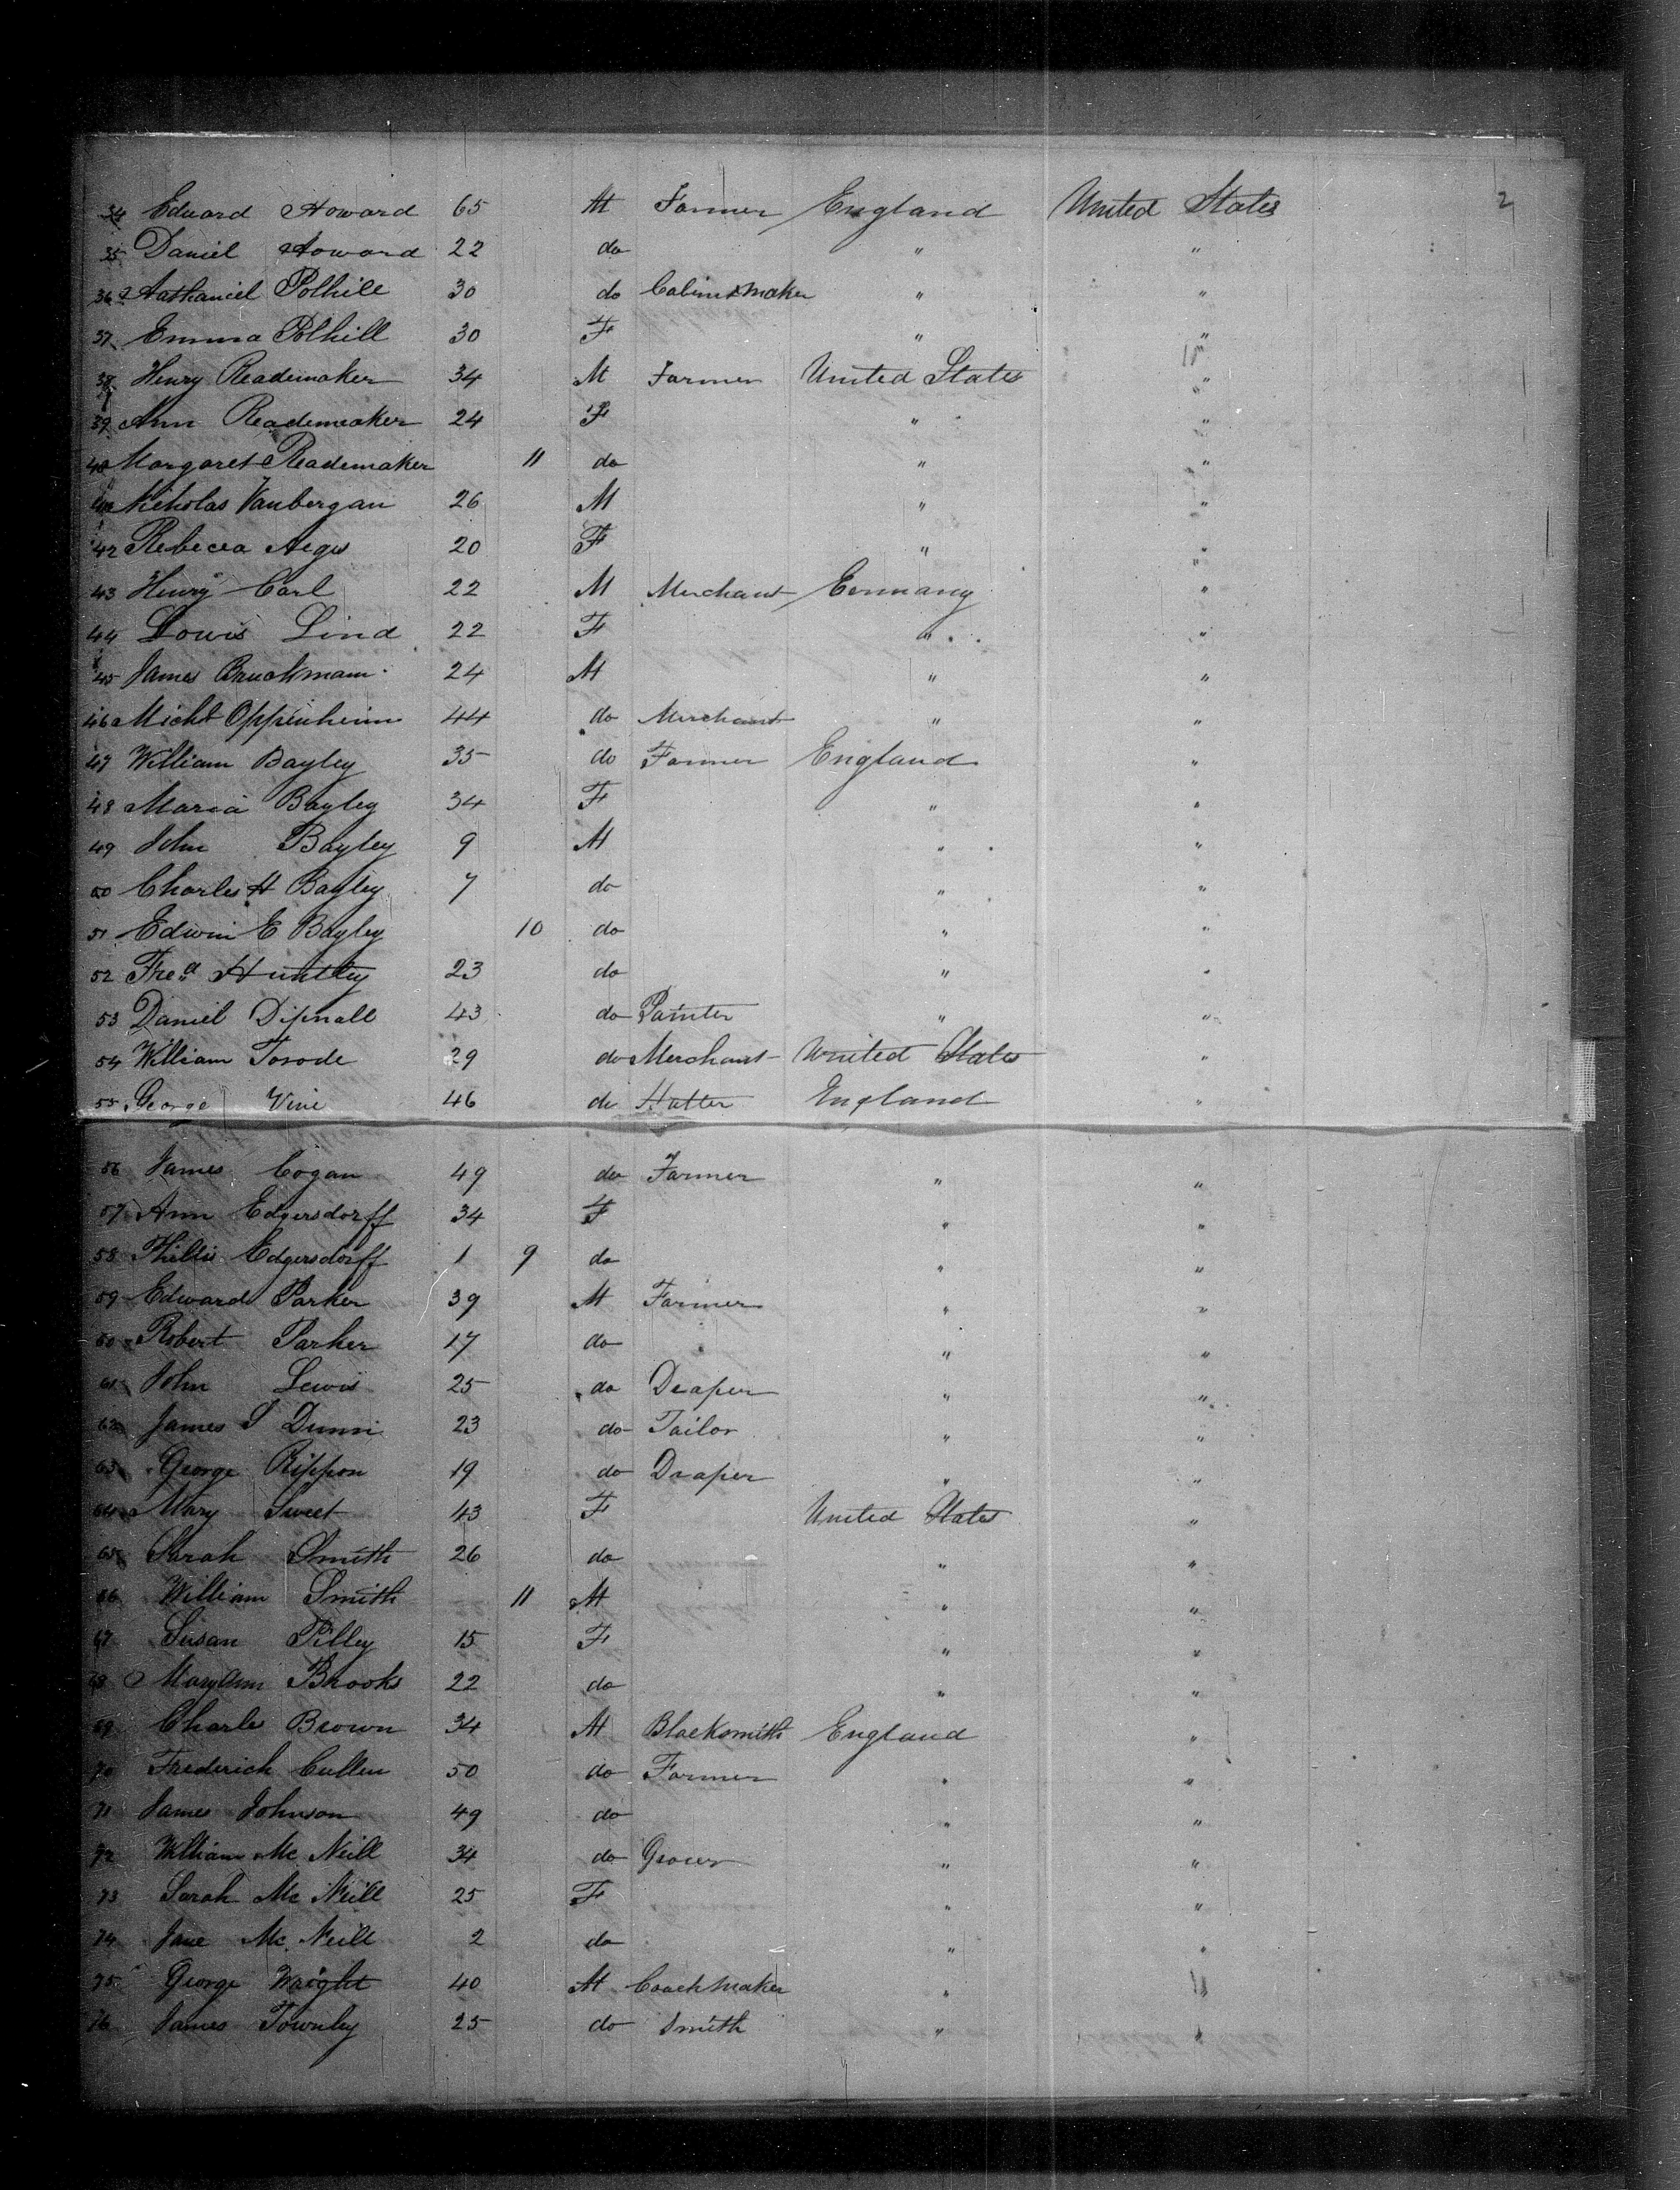 2
34 Edward Howard 65 M Farmer England United States
35 Daniel Howard 22 do " "
36 Nathaniel Polhill 30 do Cabinetmaker " "
37 Emma Polhill 30 F " "
38 Henry Rademaker 34 M Farmer United States "
39 Ann Rademaker 24 F " "
40 Margaret Rademaker 11 do " "
41 Nicholas Vanbergan 26 M " "
42 Rebecca 20 F " "
43 Henry Carl 22 M Merchant Germany "
44 Lowis Lind 22 F " "
45 James Bruckmann 24 M " "
46 Michl Oppenheim 44 do Merchant " "
47 William Bayley 35 do Farmer England "
48 Maria Bayley 34 F " "
49 John Bayley 9 M " "
50 Charles H Bayley 7 do " "
51 Edwin E Bayley 10 do " "
52 Fred Huntley 23 do " "
53 Daniel Dipnall 43 do Painter " "
54 William Torode 29 do Merchant United States "
55 George Vine 46 do Hatter England "
56 James Cogan 49 do Farmer " "
57 Ann Edgersdorff 34 F " "
58 Phillis Edgersdorff 1 9 do " "
59 Edward Parker 39 M Farmer " "
60 Robert Parker 17 do " "
61 John Lewis 25 do Draper " "
62 James S Dunn 23 do Tailor " "
63 George Rippon 19 do Draper " "
64 Mary Sweet 43 F United States "
65 Sarah Smith 26 do " "
66 William Smith 11 M " "
67 Susan Pilley 15 F " "
68 Mary Ann Brooks 22 do " "
69 Charles Brown 34 M Blacksmith England "
70 Frederick Cullen 50 do Farmer " "
71 James Johnson 49 do " "
72 William Mc Neill 34 do Grocer " "
73 Sarah Mc Neill 25 F " "
74 Jane Mc Neill 2 do " "
75 George Wright 40 M Coachmaker " "
76 James Townley 25 do Smith " "